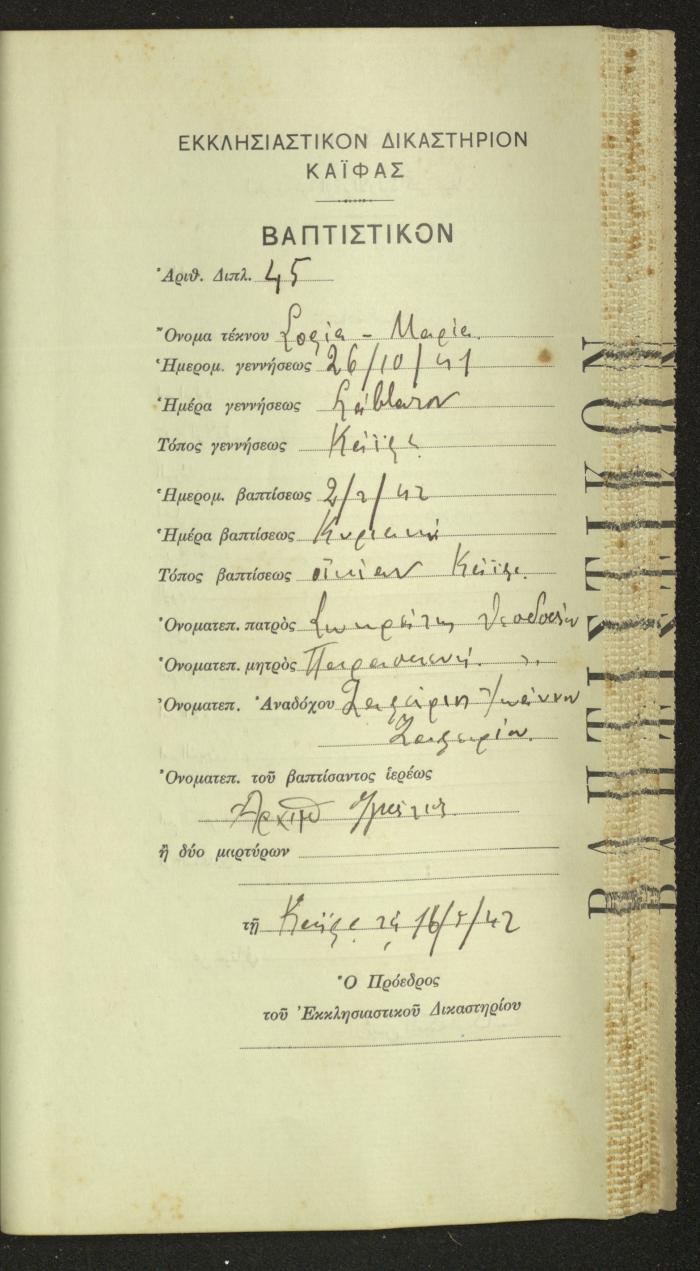 ΕΚΚΛΗΣΙΑΣΤΙΚΟΝ ΔΙΚΑΣΤΗΡΙΟΝ
ΚΑΪΦΑΣ
ΒΑΠΤΙΣΤΙΚΟΝ
Ἀριθ. Διπλ. 45
Ὄνομα τέκνου Σοφία - Μαρία
Ἡμερομ. γεννήσεως 26/10/41
Ἡμέρα γεννήσεως Σάββατον
Τόπος γεννήσεως Κάϊφα
Ἡμερομ. βαπτίσεως 2/2/42
Ἡμέρα βαπτίσεως Κυριακή
Τόπος βαπτίσεως οἰκίαν Κάϊφα
Ὀνοματεπ. πατρὸς Σωκράτης Θεοδοσίου
Ὀνοματεπ. μητρὸς Παρασκευή
Ὀνοματεπ. Ἀναδόχου Ἰωάννου
Ζαφειρίου
Ὀνοματεπ. τοῦ βαπτίσαντος ἱερέως
Ἀρχιμ
ἢ δύο μαρτύρων
τῇ Κάϊφα τῇ 16/5/42
Ὁ Πρόεδρος
τοῦ Ἐκκλησιαστικοῦ Δικαστηρίου
ΒΑΠΤΙΣΤΙΚΩΝ